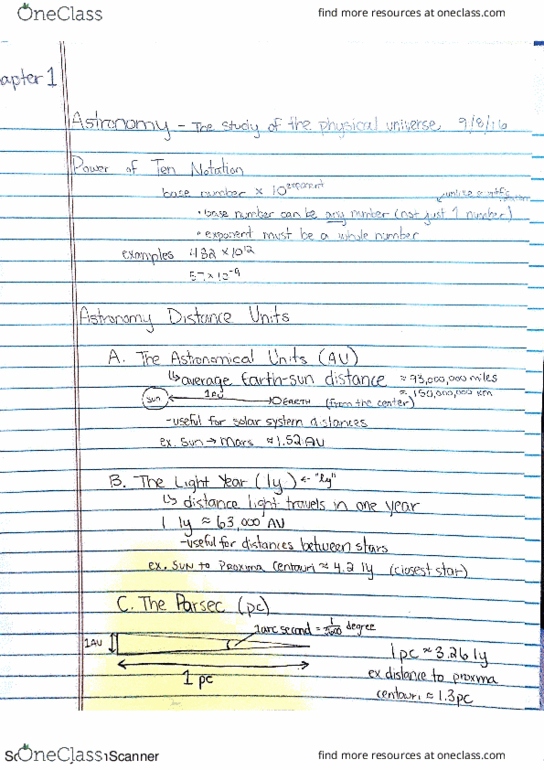 OneClass find more resources at oneclass.com
apter 1
Astronomy - The study of the physical universe 9/8/16
Power of Ten Notation
base number × 10^exponent
• base number can be any number (not just 1 number)
• exponent must be a whole number
examples 432 × 10^12
57 × 10^-9
Astronomy Distance Units
A. The Astronomical Units (AU)
↳ average Earth-sun distance ≈ 93,000,000 miles
≈ 150,000,000 km
sun 1AU EARTH (from the center)
- useful for solar system distances
ex. Sun → Mars ≈ 1.52 AU
B. The Light Year (ly) ← "ly"
↳ distance light travels in one year
1 ly ≈ 63,000 AU
- useful for distances between stars
ex. Sun to Proxima Centauri ≈ 4.2 ly (closest star)
C. The Parsec (pc)
1 arc second = 1/3600 degree
1AU
1 pc
1pc ≈ 3.26 ly
ex distance to proxima
centauri ≈ 1.3pc
OneClass Scanner find more resources at oneclass.com